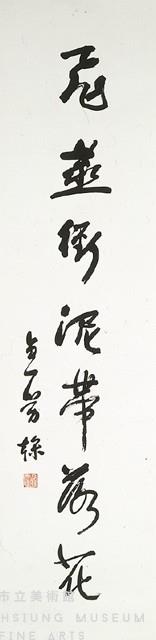 飛燕銜泥帶落花
市立美術館
HSIUNG MUSEUM
FINE ARTS